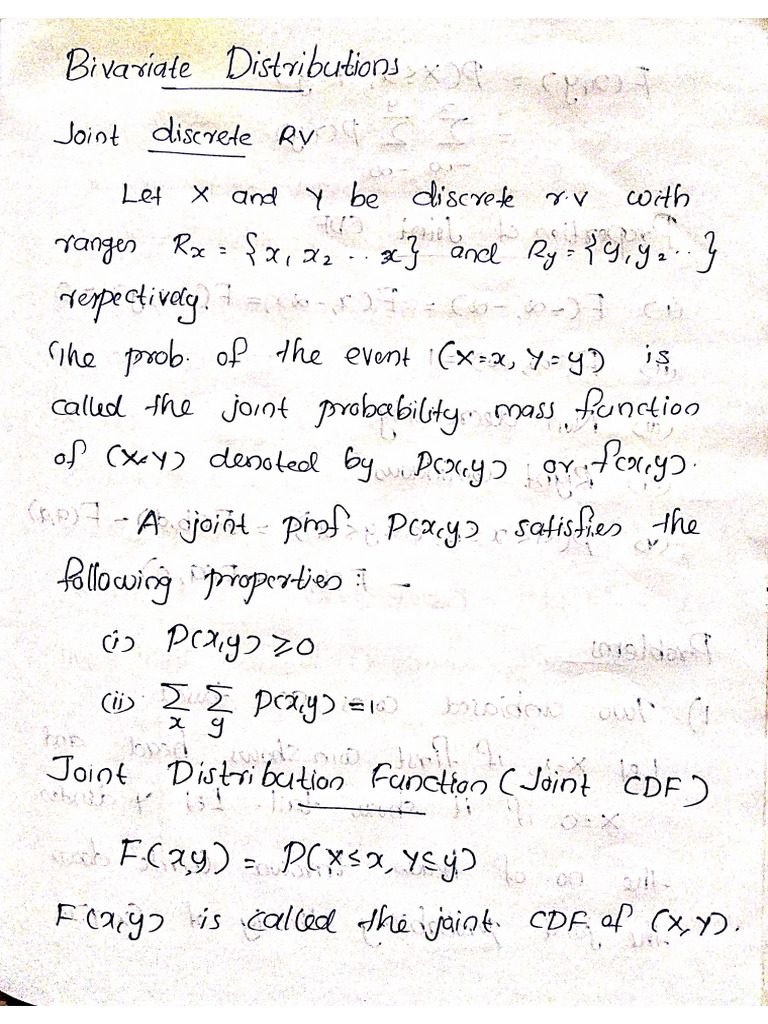 Bivariate Distributions
Joint discrete RV
Let X and Y be discrete r.v with
ranges Rx = {x₁ x₂ .. x} and Ry = {y₁ y₂ ..}
respectively.
The prob. of the event (X=x, Y=y) is
called the joint probability mass function
of (X,Y) denoted by P(x,y) or f(x,y).
A joint pmf P(x,y) satisfies the
following properties: -
(i) P(x,y) ≥ 0
(ii) Σx Σy P(x,y) = 1
Joint Distribution Function (Joint CDF)
F(x,y) = P(X≤x, Y≤y)
F(x,y) is called the joint CDF of (X,Y).